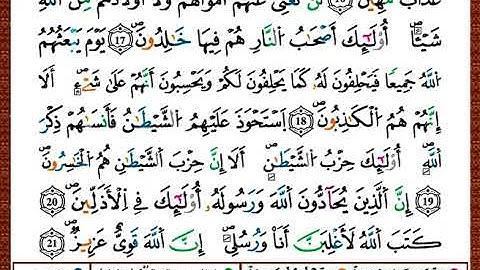 عَذَابٌ مُّهِينٌ ۝١٦ لَّن تُغْنِيَ عَنْهُمْ أَمْوَالُهُمْ وَلَا أَوْلَادُهُم مِّنَ اللَّهِ
شَيْـًٔا ۚ أُولَـٰٓئِكَ أَصْحَـٰبُ النَّارِ هُمْ فِيهَا خَـٰلِدُونَ ۝١٧ يَوْمَ يَبْعَثُهُمُ
اللَّهُ جَمِيعًا فَيَحْلِفُونَ لَهُۥ كَمَا يَحْلِفُونَ لَكُمْ وَيَحْسَبُونَ أَنَّهُمْ عَلَىٰ شَىْءٍ ۚ أَلَا
إِنَّهُمْ هُمُ الْكَـٰذِبُونَ ۝١٨ اسْتَحْوَذَ عَلَيْهِمُ الشَّيْطَـٰنُ فَأَنسَـٰهُمْ ذِكْرَ
اللَّهِ ۚ أُولَـٰٓئِكَ حِزْبُ الشَّيْطَـٰنِ ۚ أَلَا إِنَّ حِزْبَ الشَّيْطَـٰنِ هُمُ الْخَـٰسِرُونَ
۝١٩ إِنَّ الَّذِينَ يُحَآدُّونَ اللَّهَ وَرَسُولَهُۥٓ أُولَـٰٓئِكَ فِى الْأَذَلِّينَ ۝٢٠
كَتَبَ اللَّهُ لَأَغْلِبَنَّ أَنَا۠ وَرُسُلِىٓ ۚ إِنَّ اللَّهَ قَوِىٌّ عَزِيزٌ ۝٢١